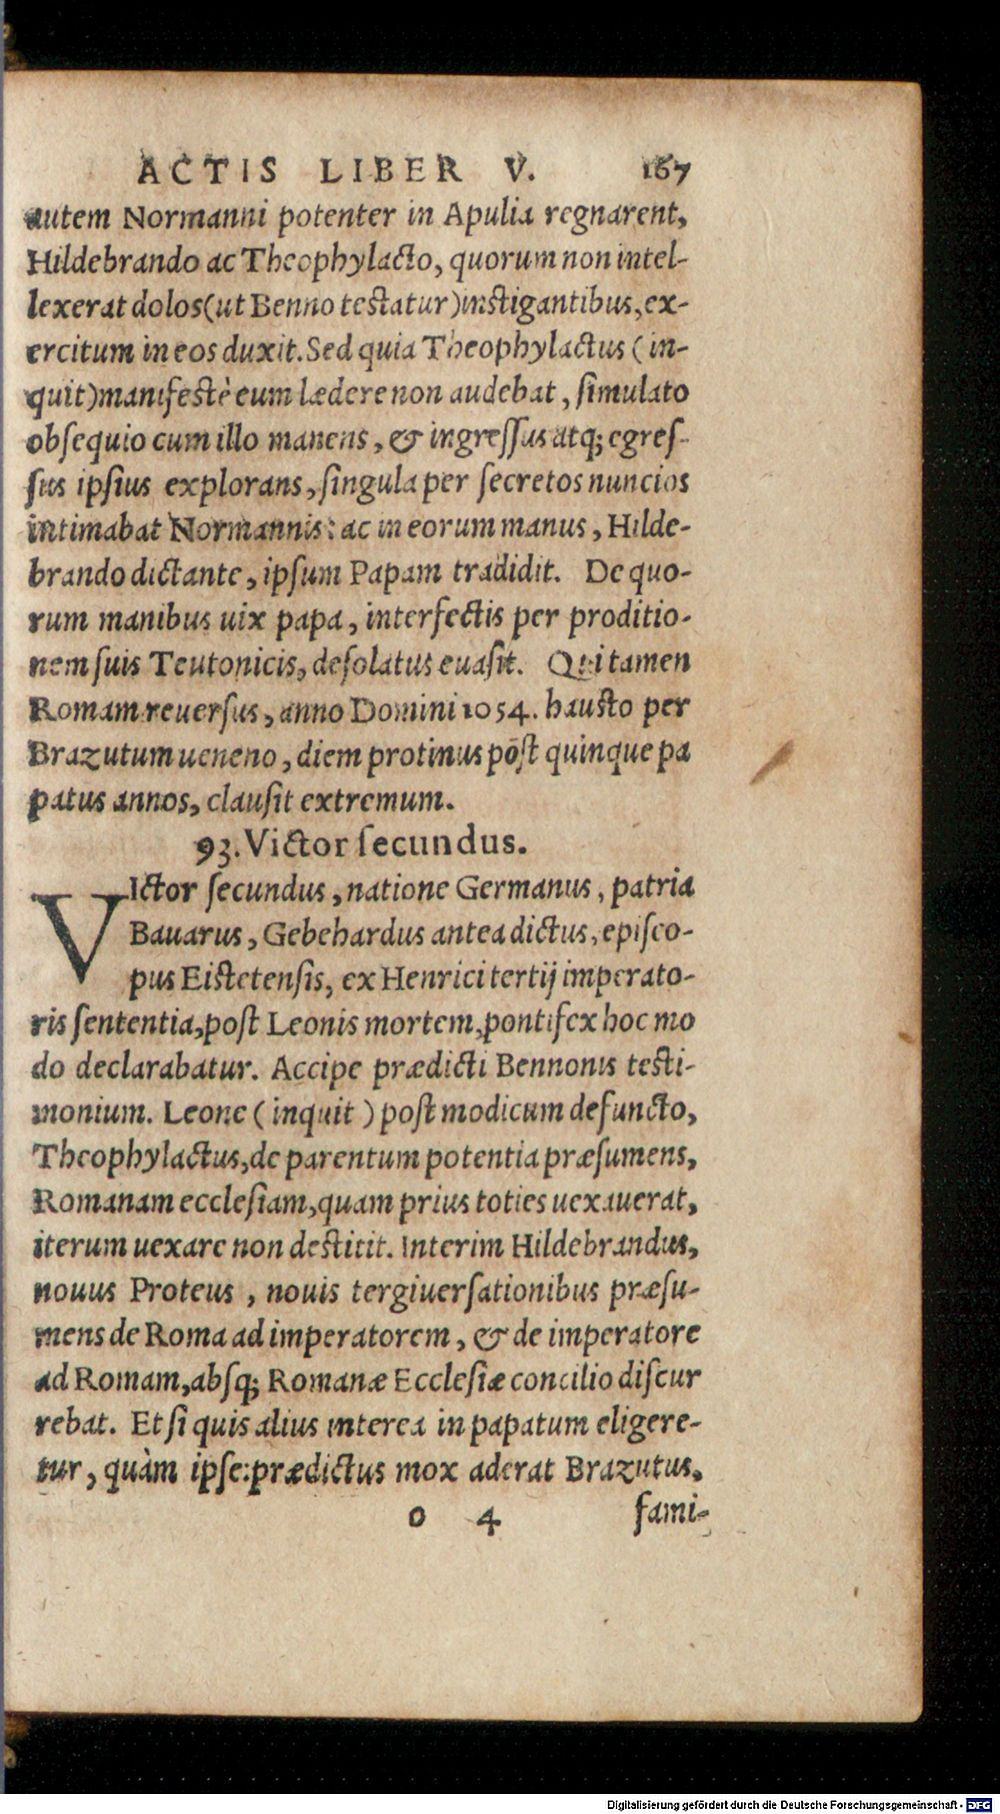 ACTIS LIBER V. 167
autem Normanni potenter in Apulia regnarent,
Hildebrando ac Theophylacto, quorum non intel-
lexerat dolos (ut Benno testatur) instigantibus, ex-
ercitum in eos duxit. Sed quia Theophylactus (in-
quit) manifestè eum lædere non audebat, simulato
obsequio cum illo manens, & ingressus atq; egres-
sus ipsius explorans, singula per secretos nuncios
intimabat Normannis: ac in eorum manus, Hilde-
brando dictante, ipsum Papam tradidit. De quo-
rum manibus uix papa, interfectis per proditio-
nem suis Teutonicis, desolatus euasit. Qui tamen
Romam reuersus, anno Domini 1054. hausto per
Brazutum ueneno, diem protinus pòst quinque pa
patus annos, clausit extremum.
93. Victor secundus.
VIctor secundus, natione Germanus, patria
Bauarus, Gebehardus antea dictus, episco-
pus Eistetensis, ex Henrici tertij imperato-
ris sententia, post Leonis mortem, pontifex hoc mo
do declarabatur. Accipe prædicti Bennonis testi-
monium. Leone (inquit) post modicum defuncto,
Theophylactus, de parentum potentia præsumens,
Romanam ecclesiam, quam prius toties uexauerat,
iterum uexare non destitit. Interim Hildebrandus,
nouus Proteus, nouis tergiuersationibus præsu-
mens de Roma ad imperatorem, & de imperatore
ad Romam, absq; Romanæ Ecclesiæ concilio discur
rebat. Et si quis alius interea in papatum eligere-
tur, quàm ipse: prædictus mox aderat Brazutus,
o 4 fami-
Digitalisierung gefördert durch die Deutsche Forschungsgemeinschaft - DFG